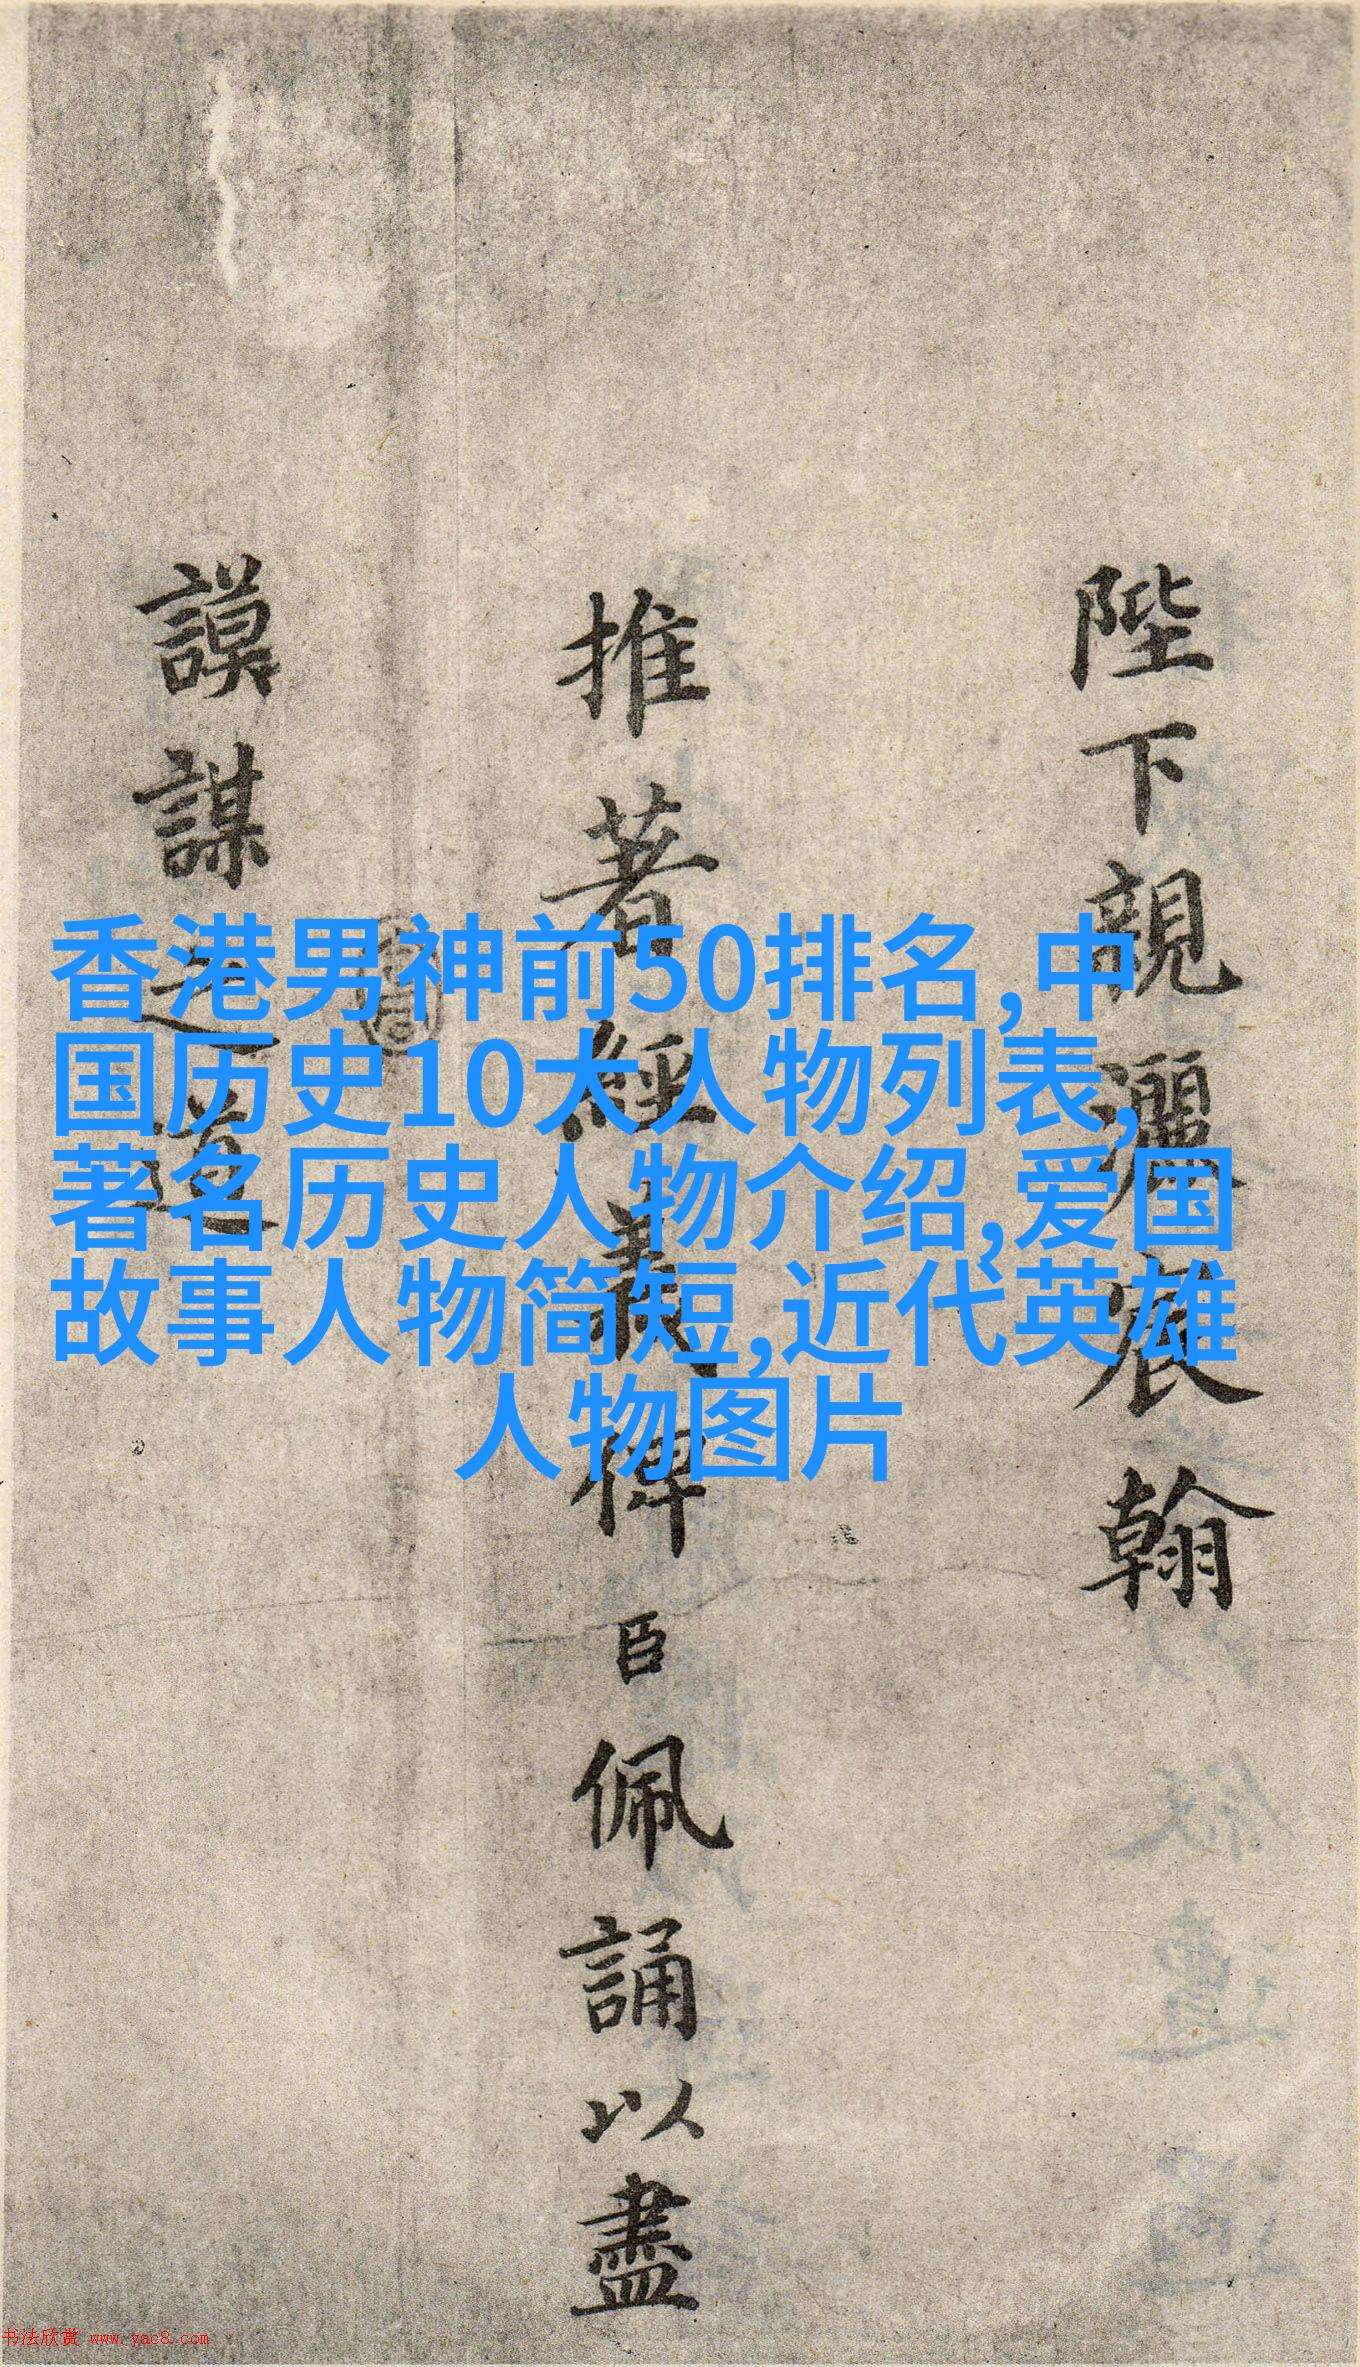 陛下親灑宸翰
推著經義俾臣佩誦以盡
謨謀之道
香港男神前50排名,中
国历史10大人物列表,
著名历史人物介绍,爱国
故事人物简短,近代英雄
人物图片
书法欣赏 www.yac8.com